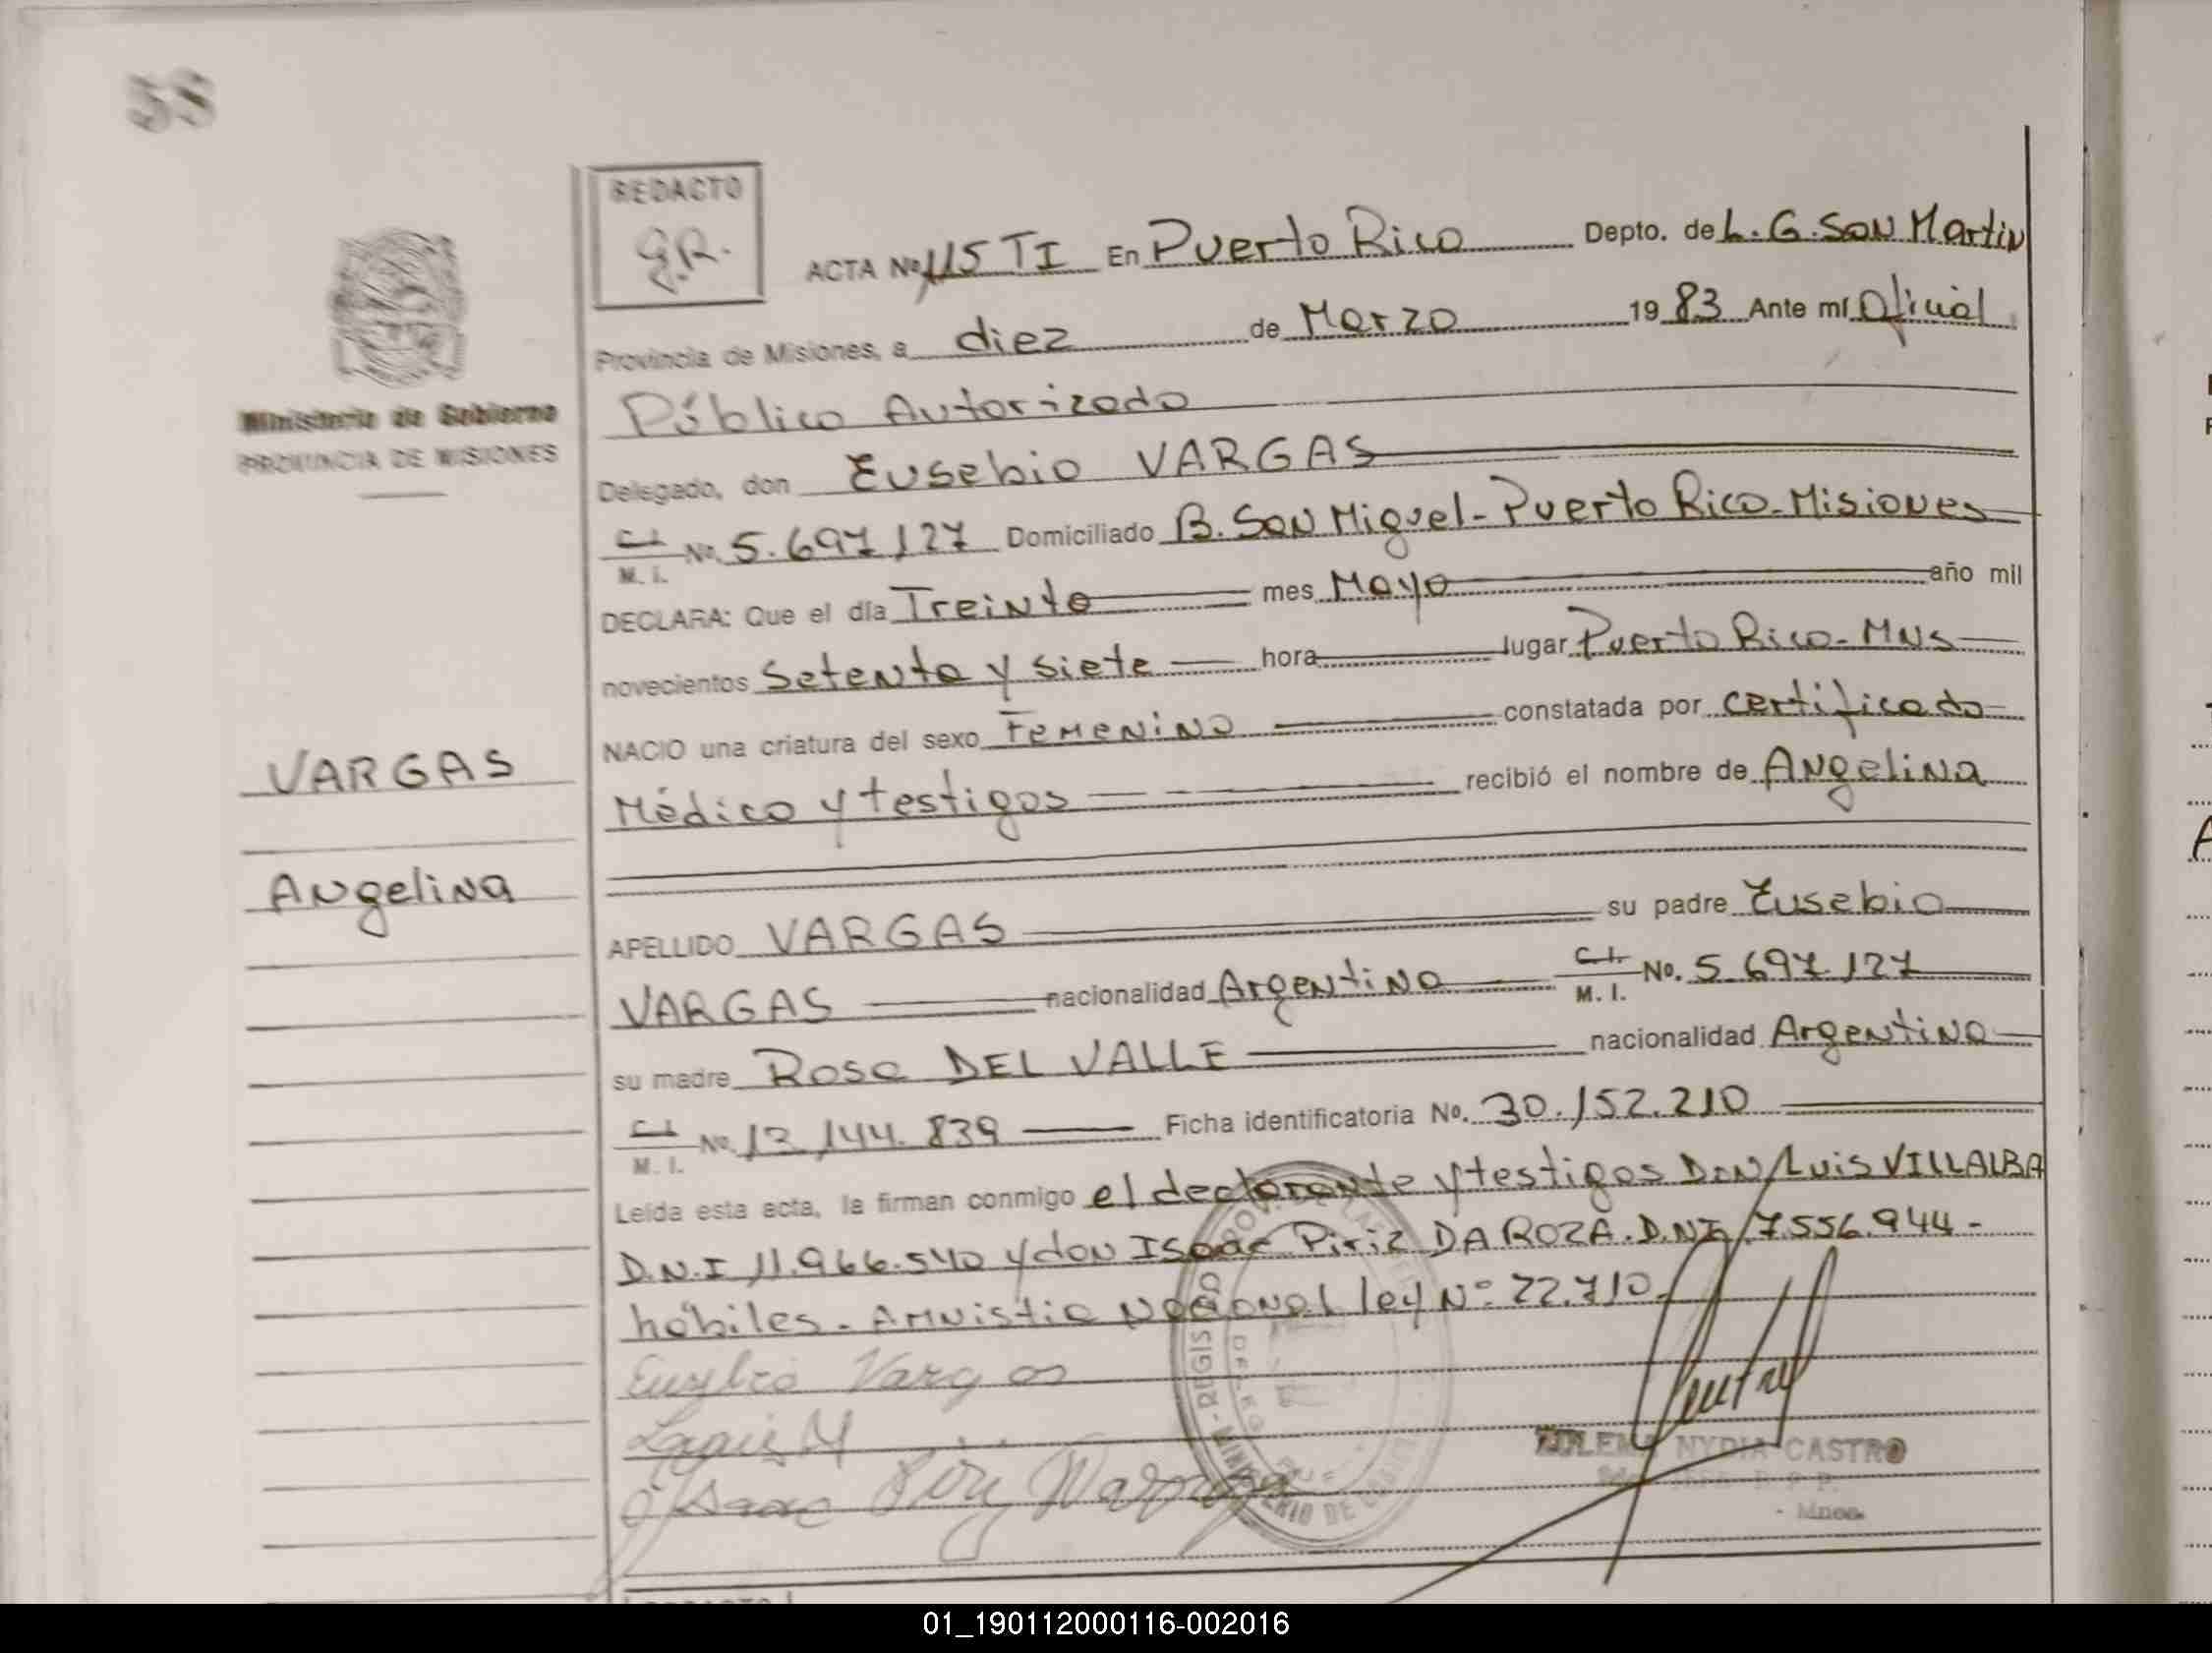 38
REDACTO
G.R.
ACTA Nº 115 TI En Puerto Rico Depto. de L. G. SAN Martin
Provincia de Misiones, a diez de Marzo 1983 Ante mí Oficial
Público Autorizado
Ministerio de Gobierno
PROVINCIA DE MISIONES
Delegado, don Eusebio VARGAS
C.I. M. I. Nº. 5.697.127 Domiciliado B. San Miguel - Puerto Rico - Misiones
DECLARA: Que el día Treinta mes Mayo año mil
novecientos Setenta y siete hora lugar Puerto Rico - MNS
NACIO una criatura del sexo Femenino constatada por certificado
VARGAS
Médico y testigos recibió el nombre de Angelina
Angelina
APELLIDO VARGAS su padre Eusebio
VARGAS nacionalidad Argentina C.I. M. I. Nº. 5.697.127
su madre Rosa DEL VALLE nacionalidad Argentina
C.I. M. I. Nº. 12.144.839 Ficha identificatoria Nº. 30.152.210
Leída esta acta, la firman conmigo el declarante y testigos Don Luis VILLALBA
D.N.I 11.966.540 y don Isaac Piriz DA ROZA. D.N.I 7.556.944 -
hábiles. Amnistia Nacional ley Nº 22.710.
Vargas
NYDIA CASTRO
- Mnes.
01_190112000116-002016